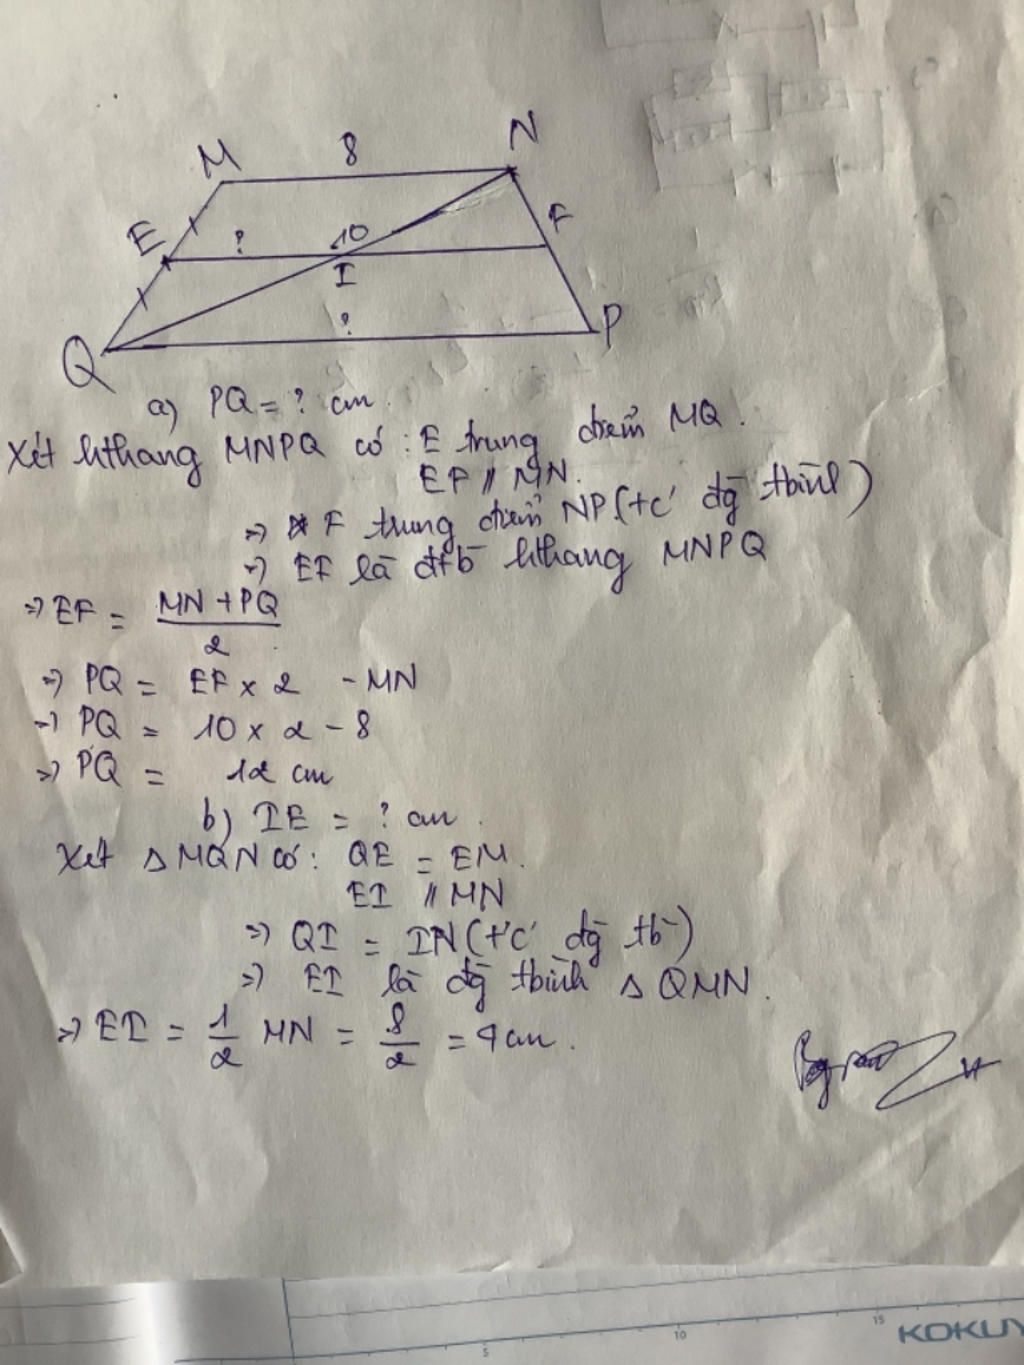 M 8 N
E ? 10 F
I
Q ? P
a) PQ = ? cm
Xét hthang MNPQ có : E trung điểm MQ.
EF // MN.
=> F trung điểm NP (t/c đg tbình)
=> EF là đtb hthang MNPQ
=> EF = MN + PQ / 2
=> PQ = EF x 2 - MN
=> PQ = 10 x 2 - 8
=> PQ = 12 cm
b) IE = ? cm.
Xét Δ MQN có: QE = EM.
EI // MN
=> QI = IN (t/c đg tb)
=> EI là đg tbình Δ QMN.
=> EI = 1/2 MN = 8/2 = 4 cm.
5 10 15 KOKUY